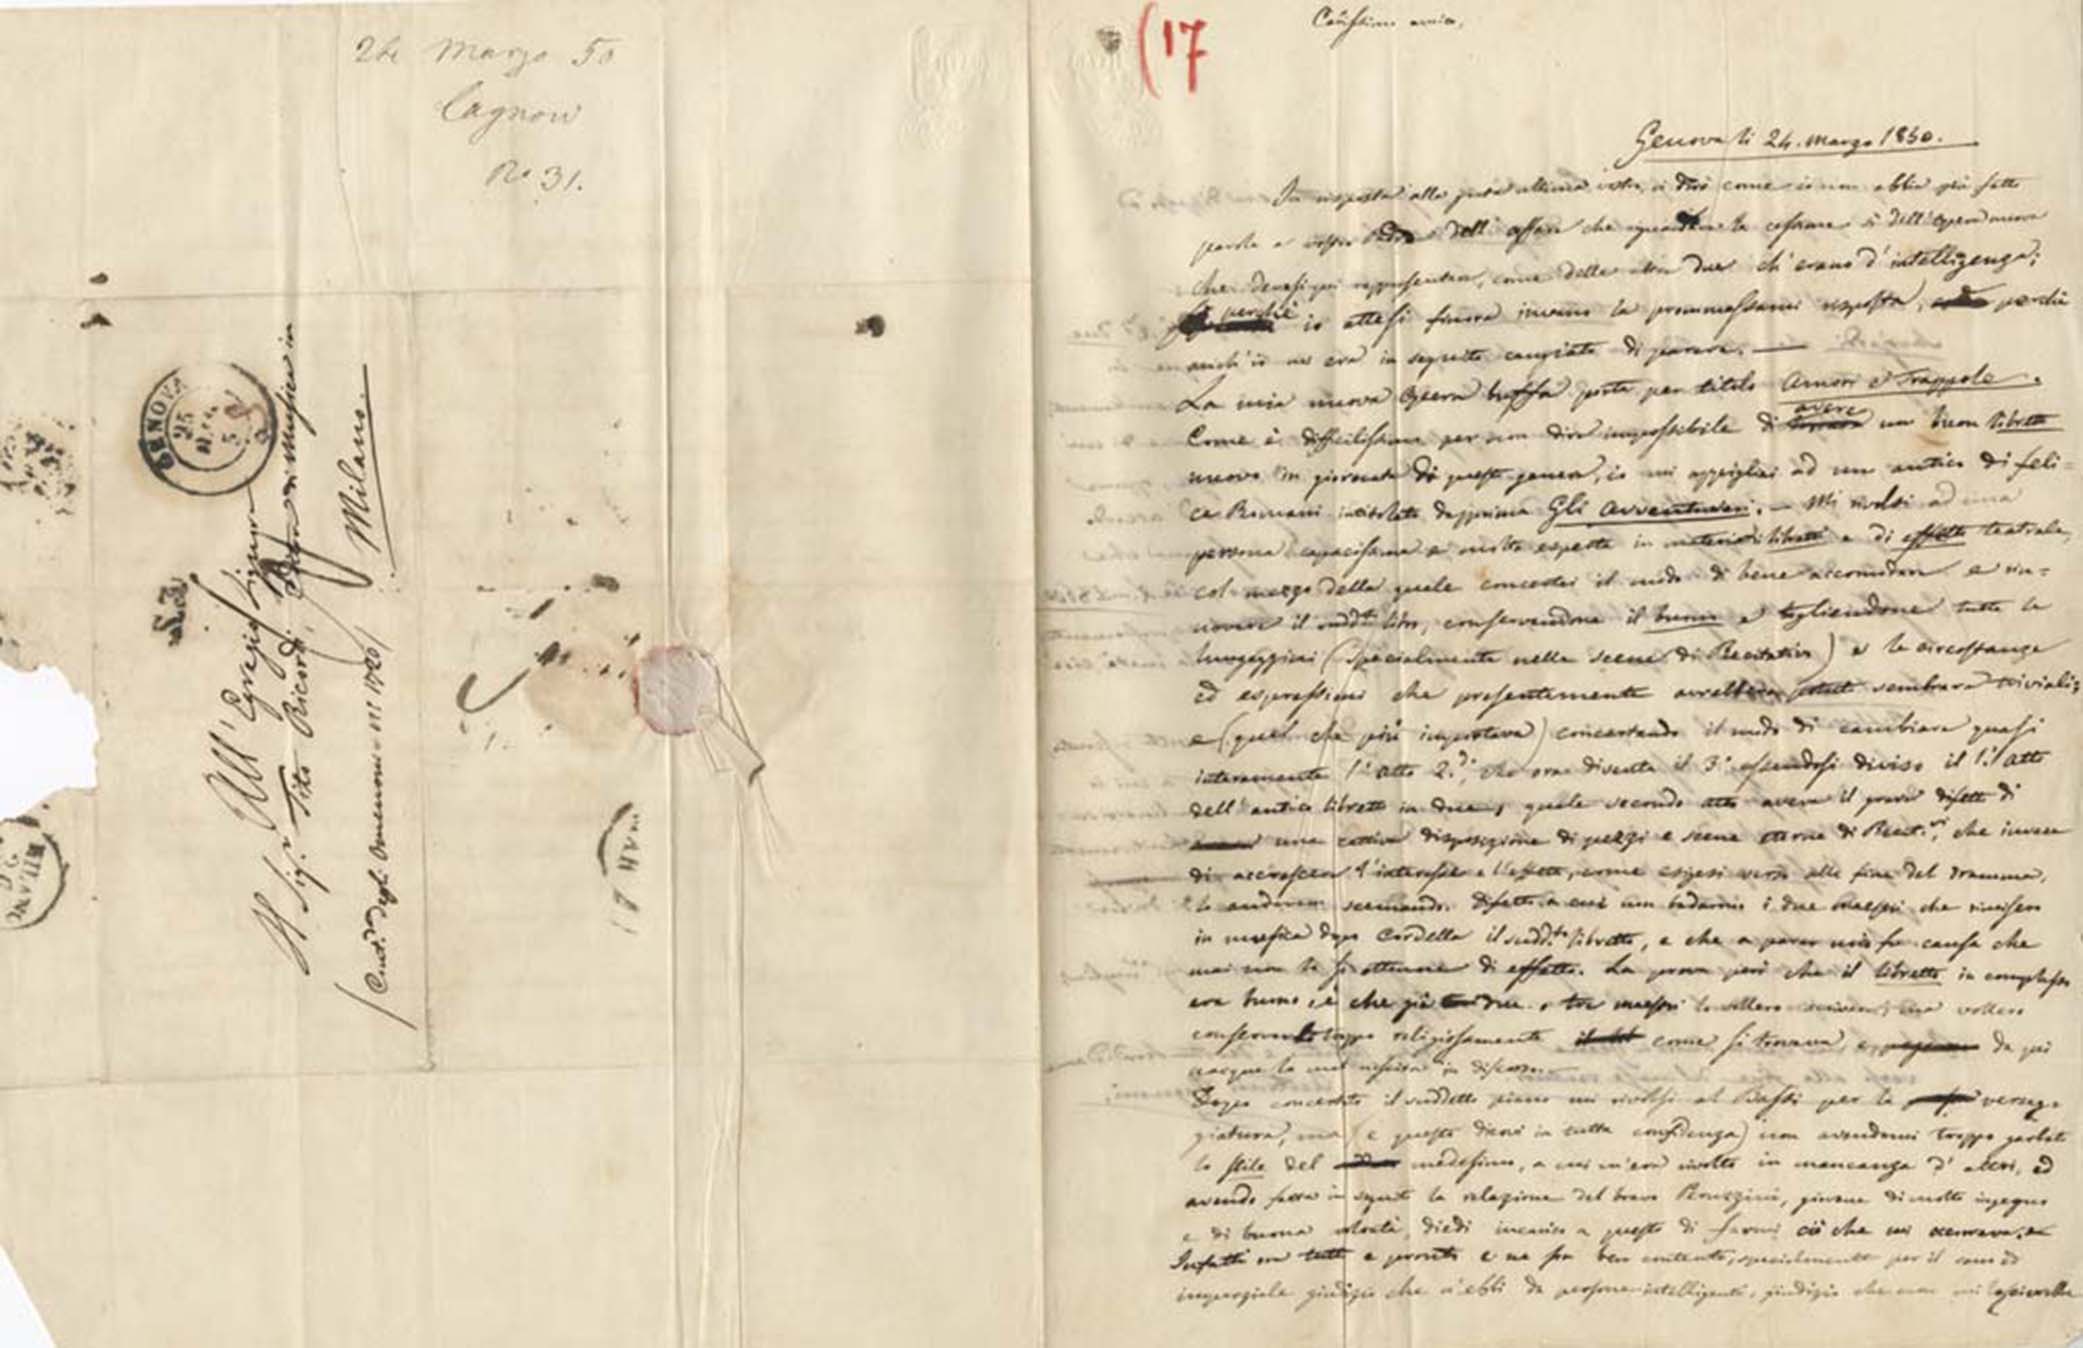 24 Marzo 50
Cagnoni
No 31.
GENOVA
25
MAR
All' Egregio Signore
Il Sigr. Tito Ricordi, Editore di Musica in
Milano.
(Contrada degli Omenoni N 1720)
MILANO
(17
Carissimo amico,
Genova li 24. Marzo 1850.
In risposta alla ultima vostra, vi dirò come io non abbia più fatto
parola a vostro Padre dell' affare che la cessione sì dell' opera nuova
che devesi qui rappresentare, come delle altre due ch' erano d' intelligenza;
perchè io attesi finora invano la promessami risposta, perchè
anch' io mi era in seguito cangiato di parere. —
La mia nuova Opera buffa porta per titolo Amori e Trappole.
Come è difficilissimo per non dire impossibile di avere un buon libretto
nuovo in giornata di questo genere, io mi appigliai ad un antico di Feli=
ce Romani intitolato dapprima Gli Avventurieri. — Mi rivolsi ad una
persona capacissima e molto esperta in materia di libretti e di effetto teatrale,
col mezzo della quale concertai il modo di bene accomodare e rin=
novare il suddto libro, conservandone il buono e togliendone tutte le
lungaggini (specialmente nelle scene di Recitativo) e le circostanze
ed espressioni che presentemente avrebbero potuto sembrare triviali;
e (quel che più importava) concertando il modo di cambiare quasi
interamente l' atto 2.do, che ora diventa il 3o essendosi diviso il 1o atto
dell' antico libretto in due, quale secondo atto aveva il grave difetto di
una cattiva disposizione di pezzi e scene eterne di Recit.vi, che invece
di accrescere l' interesse e l' effetto, come esigesi verso alla fine del dramma,
lo andavan scemando. Difetto a cui non badarono i due maestri che
in musica dopo Cordella il suddto libretto, e che a parer mio fu causa che
mai non si ottenne di effetto. La prova però che il libretto in complesso
era buono, è che già due o tre maestri lo vollero scrivere, ma vollero
conservarlo troppo religiosamente come si trovava, e da qui
nacque la mal riuscita in discorso. —
Dopo concertato il suddetto piano mi rivolsi al Bassi per la verseg=
giatura, ma (e questo dicovi in tutta confidenza) non avendomi troppo garbato
lo stile del medesimo, a cui m' era rivolto in mancanza d' altri, ed
avendo fatta in seguito la relazione del bravo Peruzzini, giovane di molto ingegno
e di buona volontà, diedi incarico a questo di farmi ciò che mi occorreva.
Infatti ora tutto è pronto e ne son ben contento, specialmente per il sano ed
imparziale giudizio che n' ebbi da persone intelligenti, giudizio che non mi